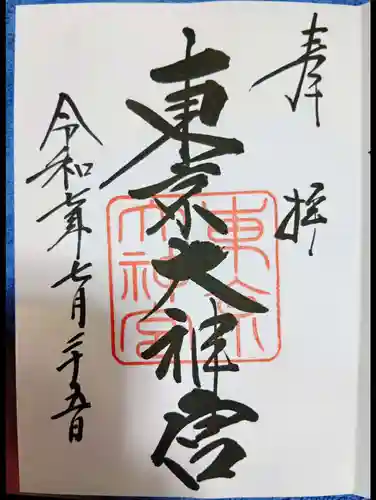 奉拝
東京大神宮
東京大神宮
令和七年七月二十五日